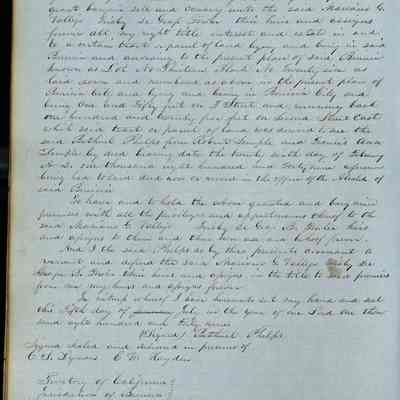 grant bargain sell and convey unto the said Mariano G.
Vallejo Frisby De Graff Foster their heirs and assigns
forever all my right title interest and estate in and
to a certain tract or parcel of land lying and being in said
Benicia and according to the present plan of said Benicia
known as Lot No Block No Twenty six as
laid down and numbered as above in the present plan of
Benicia City and lying and being in Benicia City and
being One hundred and Fifty feet on I Street and running back
one hundred and twenty five feet on Second Street East
which said tract or parcel of land was deeded to me the
said Bethuel Phelps from Robert Semple and Francis Ann
Semple by deed bearing date the twenty sixth day of February
A.D. one thousand eight hundred and forty nine reference
being had to said deed now on record in the office of the Alcalde of
said Benicia
To have and to hold the above granted and bargained
premises with all the privileges and appurtenances thereof to the
said Mariano G. Vallejo Frisby De Graff B. Foster heirs
and assigns to them and their own use and behoof forever.
And I the said Phelps do by these presents covenant to
warrant and defend the said Mariano G. Vallejo Frisby De
Foster their heirs and assigns in the title to said premises
from me my heirs and assigns forever
In witness whereof I have hereunto set my hand and seal
this Fifth day of July in the year of our Lord One thou
sand eight hundred and Forty nine
(Signed) Bethuel Phelps
Signed sealed and delivered in presence of
C. E. C. W. Hayden
Territory of California
Jurisdiction of Benicia